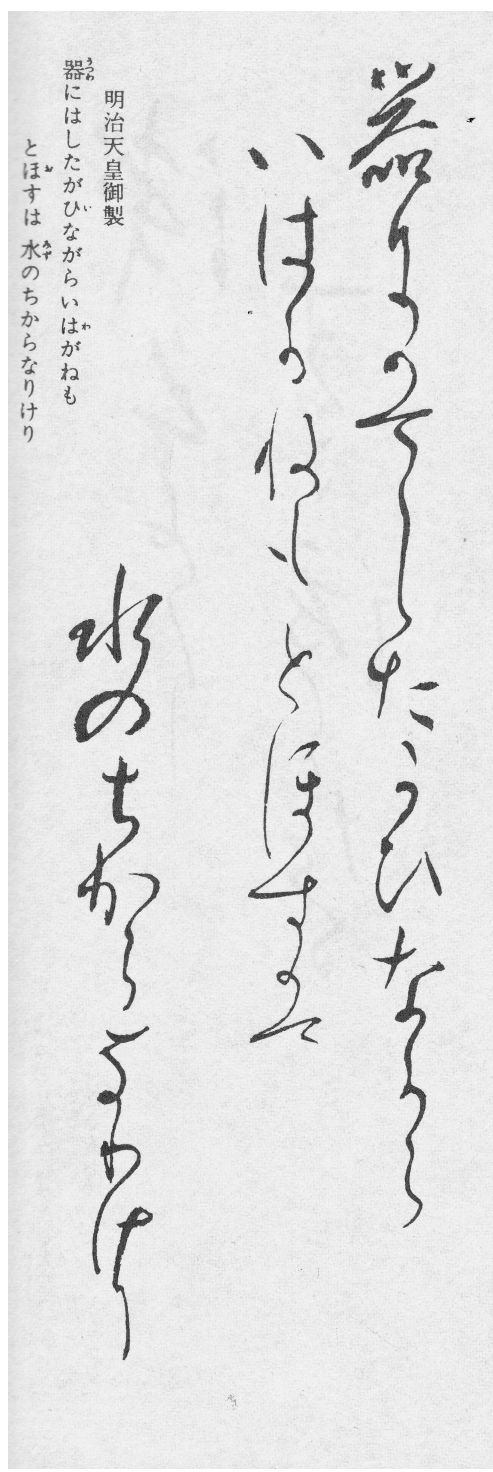 器にはしたかひなから
いはかねもとほすは
水のちからなりけり
明治天皇御製
器にはしたがひながらいはがねも
とほすは 水のちからなりけり